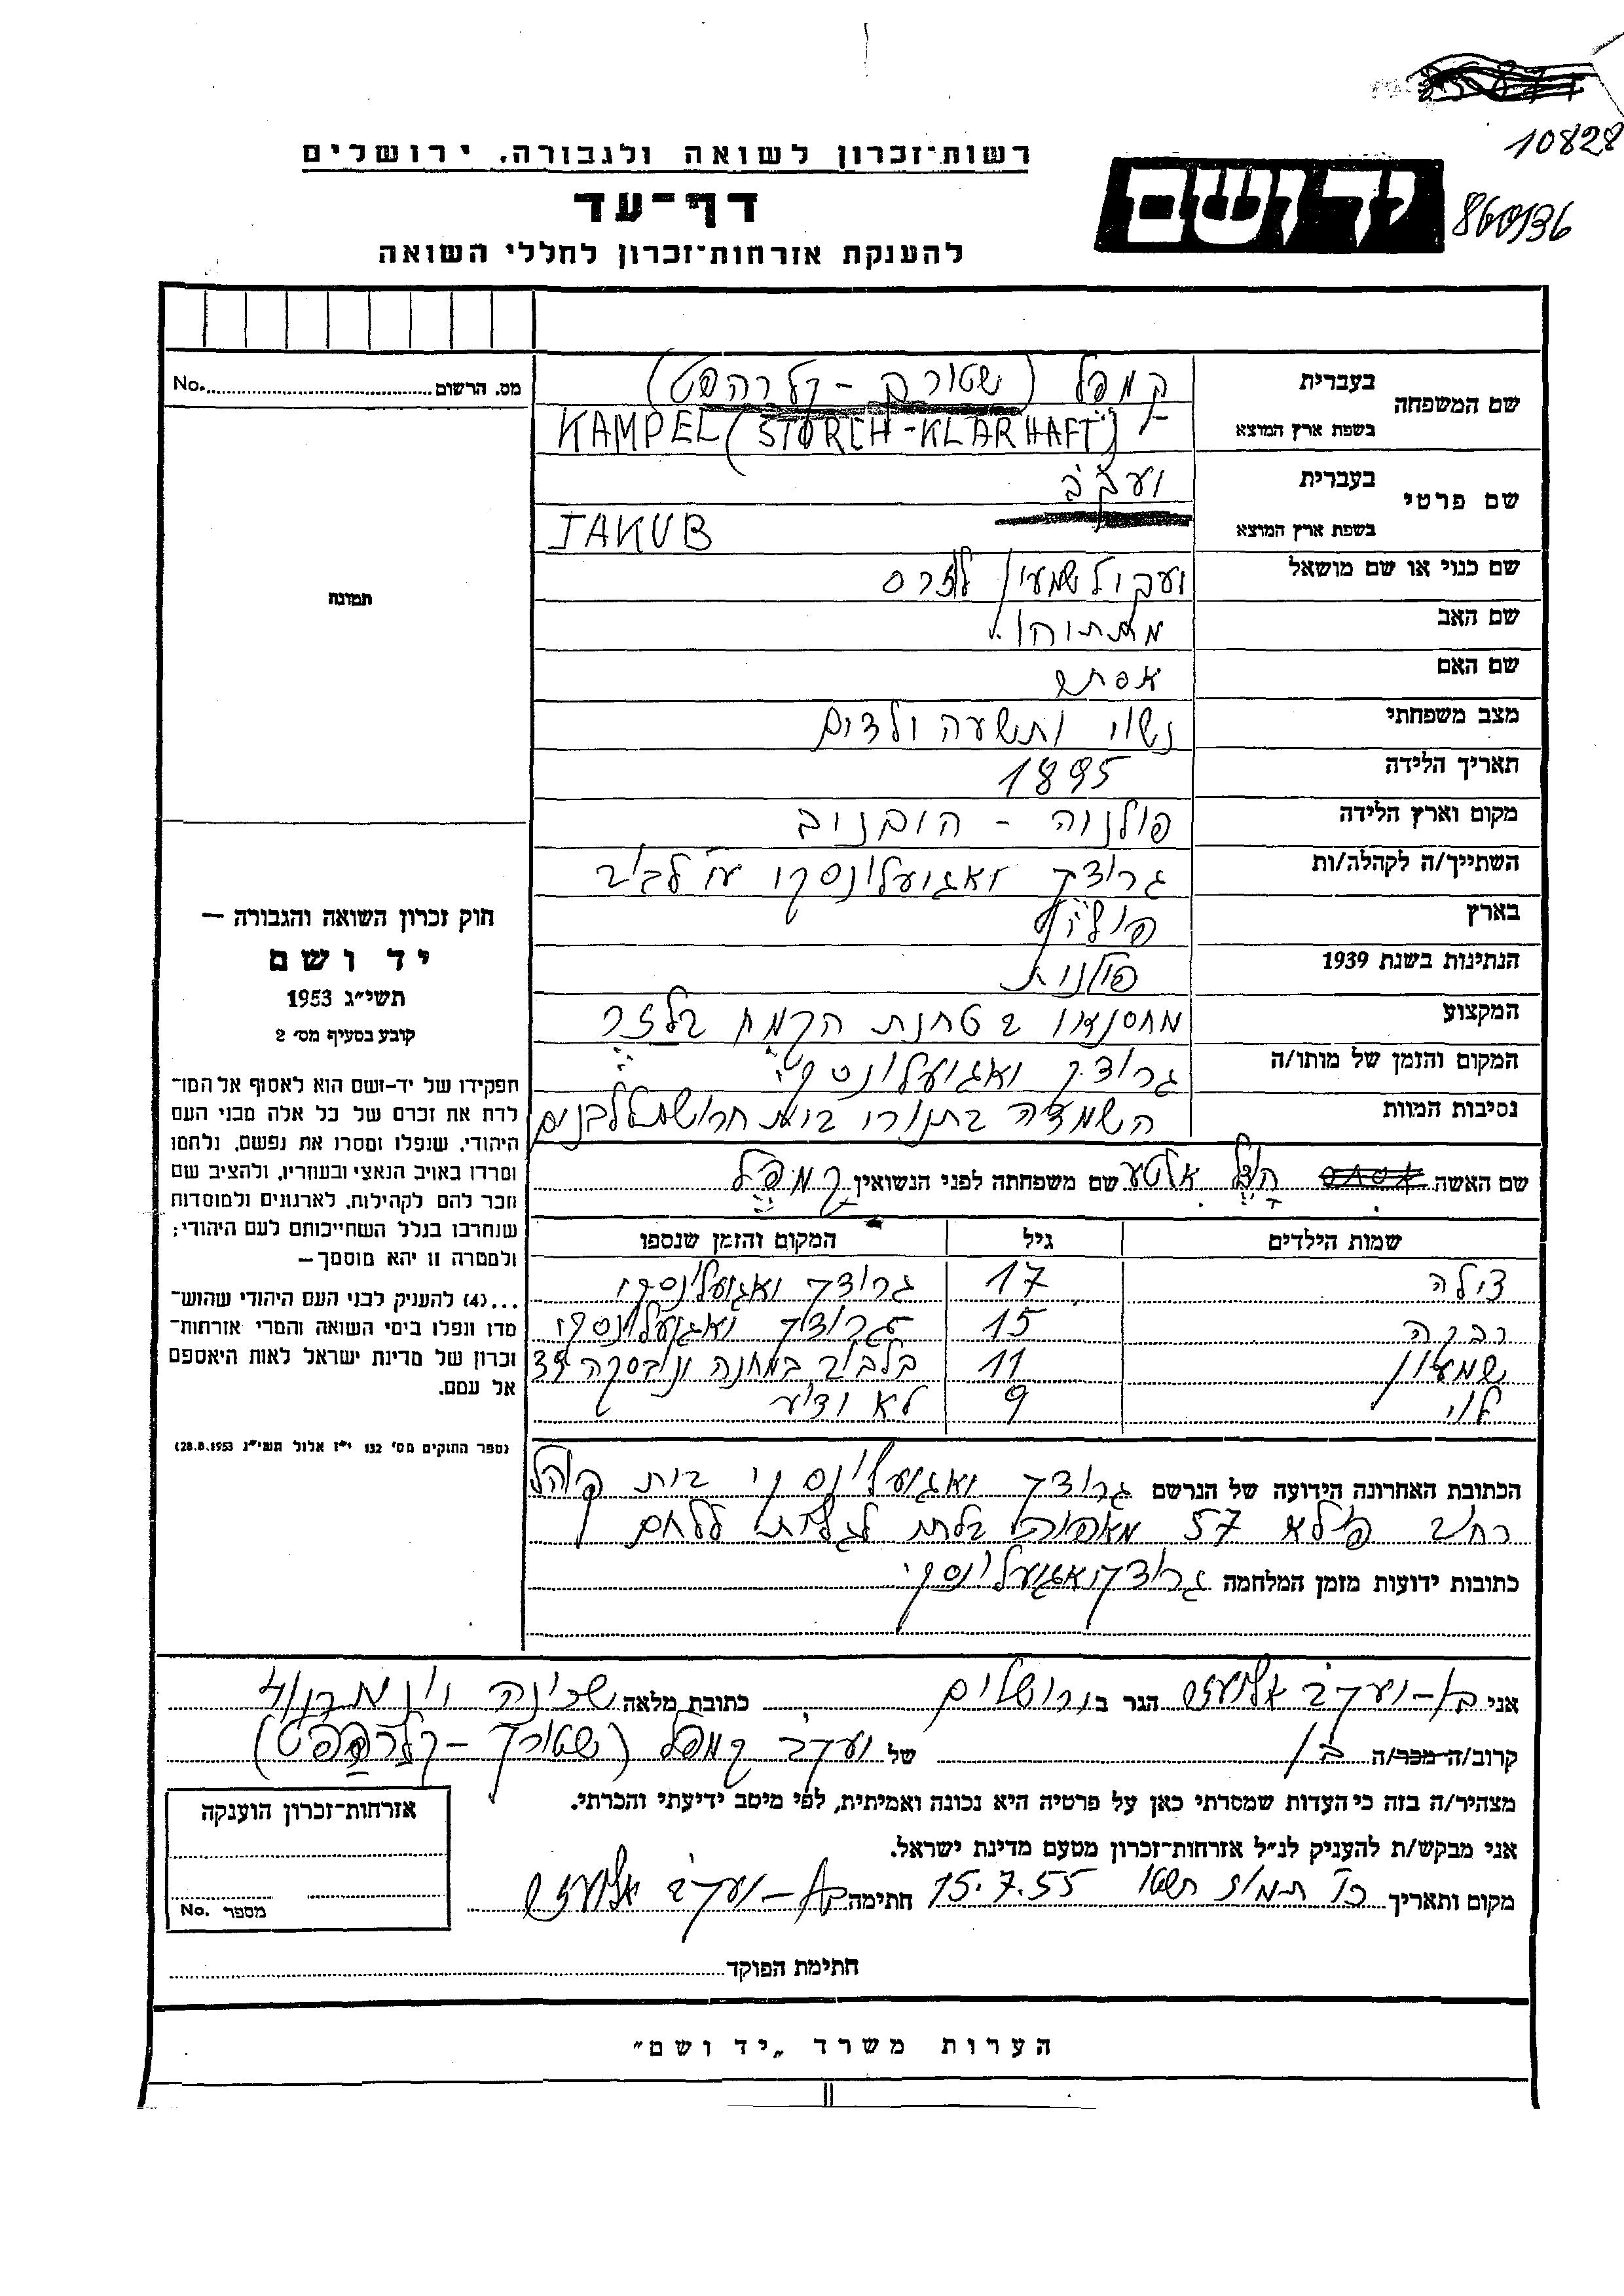 10828
רשות־זכרון לשואה ולגבורה. ירושלים
יד ושם
860/136
דף־עד
להענקת אזרחות־זכרון לחללי השואה
שם המשפחה בעברית קמפל (שטורך - קלרהפט)
בשפת ארץ המוצא KAMPEL (STORCH-KLARHAFT)
שם פרטי בעברית יעקב
בשפת ארץ המוצא JAKUB
שם כנוי או שם מושאל
שם האב מתתיהו
שם האם אסתר
מצב משפחתי נשוי ותשעה ילדים
תאריך הלידה 1895
מקום וארץ הלידה פולניה -
השתייך/ה לקהלה/ות גרודק יאגיעלונסקי ע"י לביב
בארץ פולין
הנתינות בשנת 1939 פולנית
המקצוע מחסנאי בטחנת הקמח
המקום והזמן של מותו/ה גרודק יאגיעלונסקי
נסיבות המוות השמדה בתנורי בית חרושת ללבנים
שם האשה אלטע שם משפחתה לפני הנשואין קמפל
שמות הילדים גיל המקום והזמן שנספו
צילה 17 גרודק יאגיעלונסקי
רבקה 15 גרודק יאגיעלונסקי
שמעון 11 בלביב במחנה ינובסקה
לוי 9 לא ידוע
הכתובת האחרונה הידועה של הנרשם גרודק יאגיעלונסקי בית
רחוב 57 ללחם
כתובות ידועות מזמן המלחמה גרודק יאגיעלונסקי
מס. הרשום No.
תמונה
חוק זכרון השואה והגבורה —
יד ושם
תשי״ג 1953
קובע בסעיף מס׳ 2
תפקידו של יד-ושם הוא לאסוף אל המו־
לדת את זכרם של כל אלה מבני העם
היהודי, שנפלו ומסרו את נפשם, נלחמו
ומרדו באויב הנאצי ובעוזריו, ולהציב שם
וזכר להם לקהילות, לארגונים ולמוסדות
שנחרבו בגלל השתייכותם לעם היהודי;
ולמטרה זו יהא מוסמך—
...(4) להעניק לבני העם היהודי שהוש־
מדו ונפלו בימי השואה והמרי אזרחות־
זכרון של מדינת ישראל לאות היאספם
אל עמם.
(ספר החוקים מס׳ 132 י״ז אלול תשי״ג 28.8.1953)
אני בן-יעקב אליעזר הגר ב ירושלים כתובת מלאה
קרוב/ה מכר/ה בן של יעקב קמפל (שטורך - קלרהפט)
מצהיר/ה בזה כי העדות שמסרתי כאן על פרטיה היא נכונה ואמיתית, לפי מיטב ידיעתי והכרתי.
אני מבקש/ת להעניק לנ״ל אזרחות־זכרון מטעם מדינת ישראל.
מקום ותאריך תמוז תשטו 15.7.55 חתימה בן-יעקב אליעזר
אזרחות־זכרון הוענקה
מספר No.
חתימת הפוקד
הערות משרד „יד ושם״